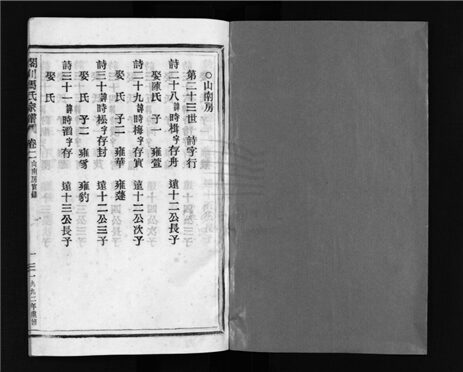 ○山南房
第二十三世 詩字行
詩二十八 諱時楫 字存舟 遠十二公長子
娶陳氏 子一 雍萱
詩二十九 諱時梅 字存實 遠十二公次子
娶 氏 子二 雍華 雍蓮
詩三十 諱時松 字存封 遠十二公三子
娶 氏 子二 雍 雍豹
詩三十一 諱時 字存 遠十三公長子
娶 氏
氏宗譜 卷二 山南房實錄